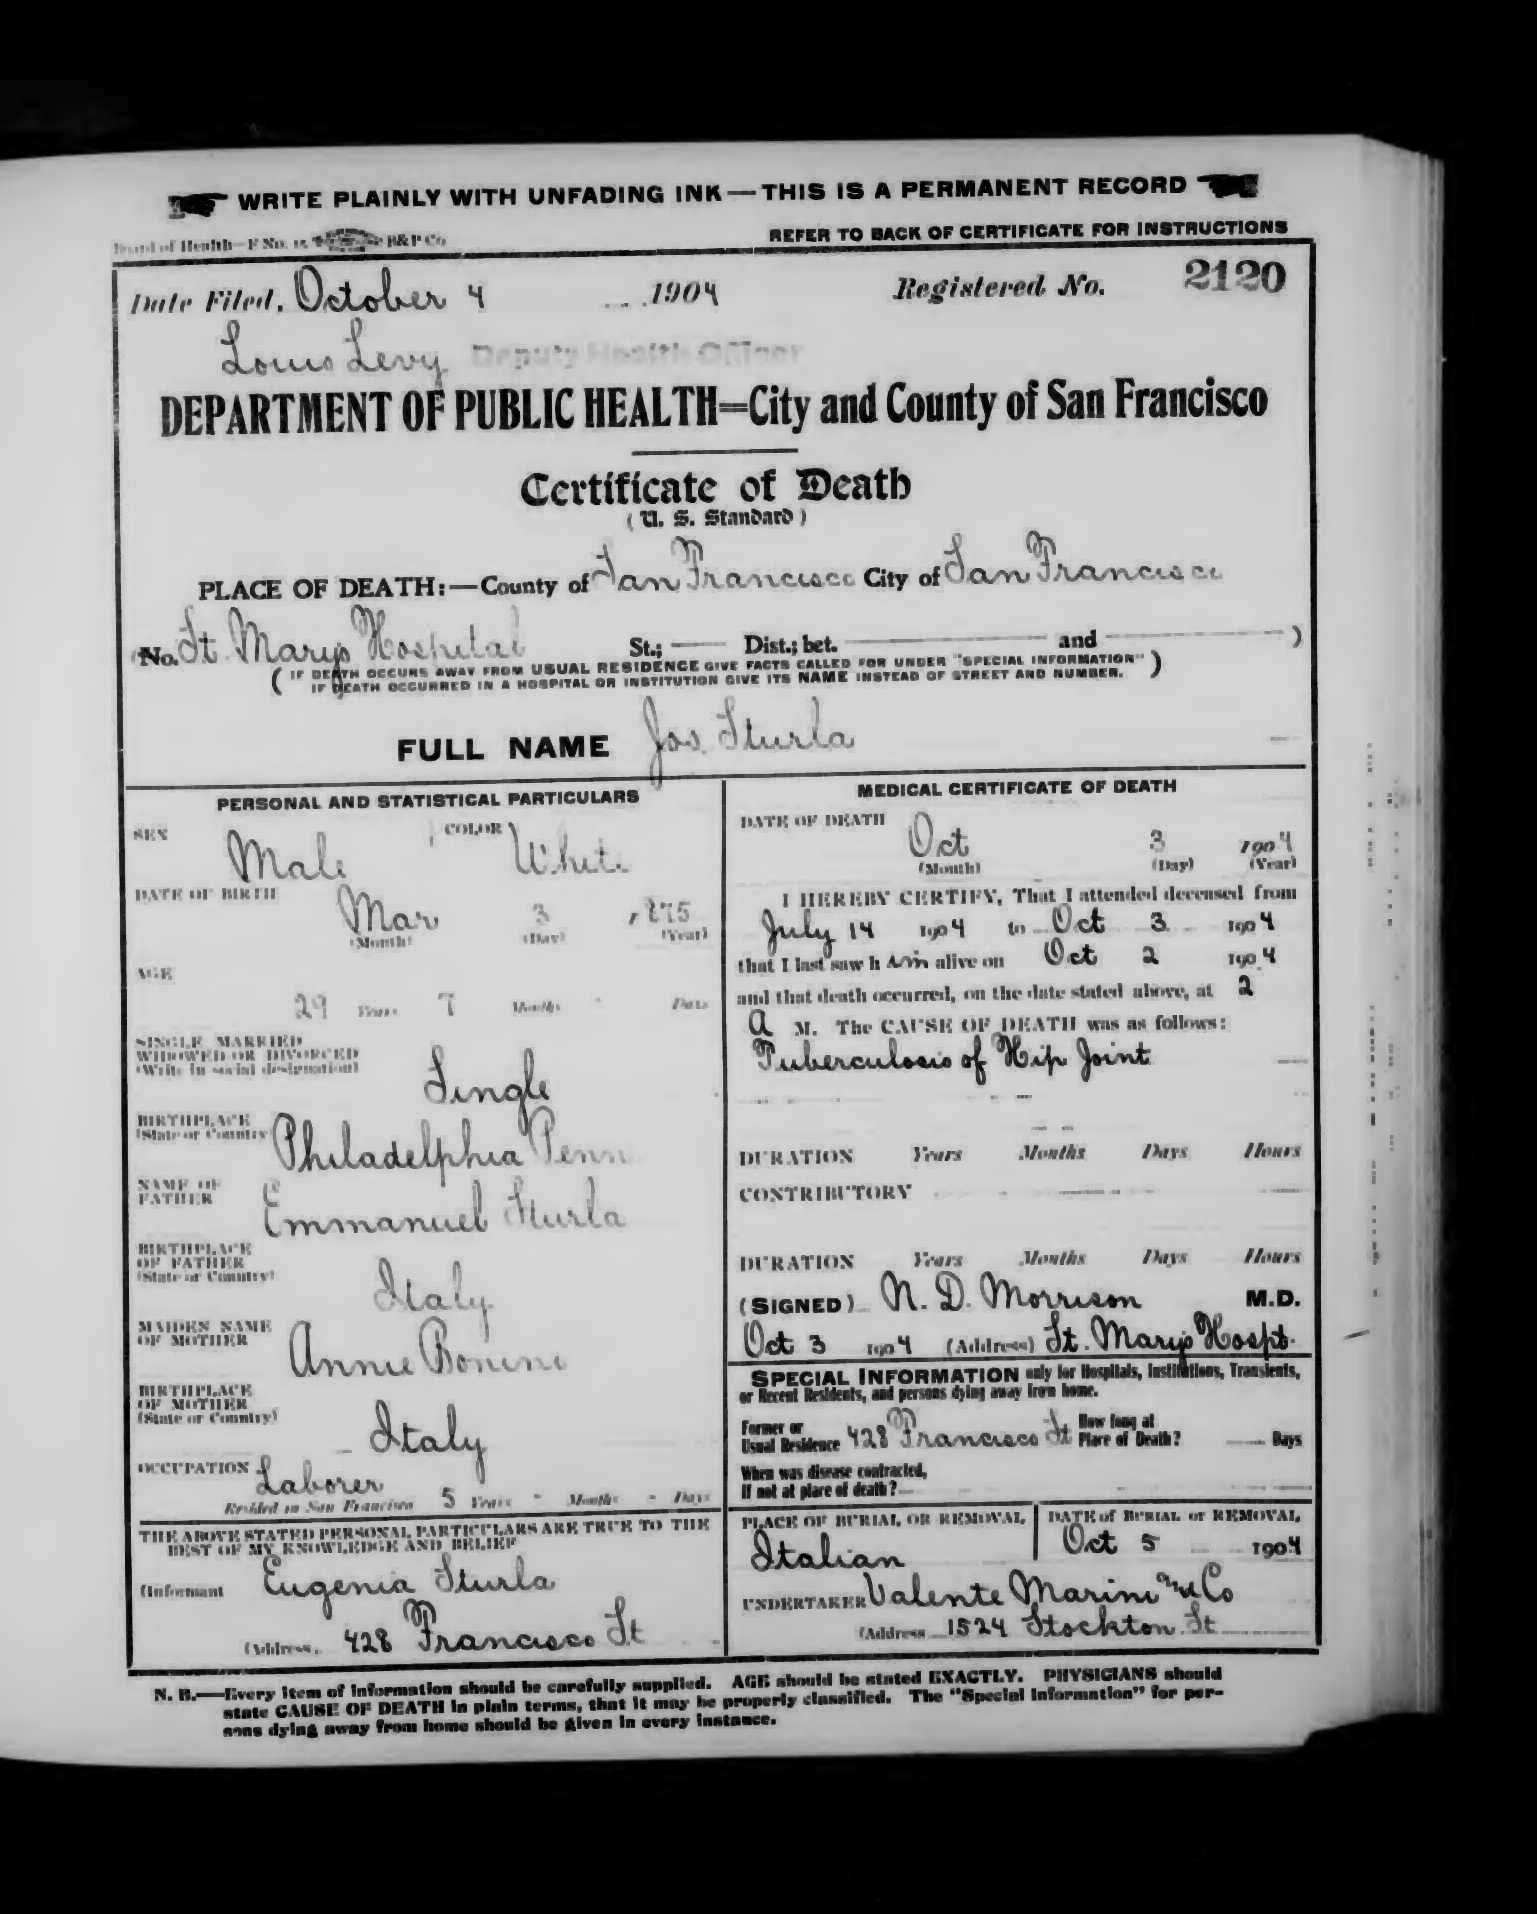 WRITE PLAINLY WITH UNFADING INK—THIS IS A PERMANENT RECORD
Board of Health—F No. 15 B&P Co
REFER TO BACK OF CERTIFICATE FOR INSTRUCTIONS
Date Filed, October 4 1904 Registered No. 2120
Louis Levy Deputy Health Officer
DEPARTMENT OF PUBLIC HEALTH=City and County of San Francisco
Certificate of Death
(U. S. Standard)
PLACE OF DEATH:—County of San Francisco City of San Francisco
(No. St. Marys Hospital St.; Dist.; bet. and )
( IF DEATH OCCURS AWAY FROM USUAL RESIDENCE GIVE FACTS CALLED FOR UNDER "SPECIAL INFORMATION" )
IF DEATH OCCURRED IN A HOSPITAL OR INSTITUTION GIVE ITS NAME INSTEAD OF STREET AND NUMBER.
FULL NAME Jos. Sturla
PERSONAL AND STATISTICAL PARTICULARS
SEX Male COLOR White
DATE OF BIRTH Mar 3 1875
(Month) (Day) (Year)
AGE
29 Years 7 Months - Days
SINGLE, MARRIED
WIDOWED OR DIVORCED
(Write in social designation)
Single
BIRTHPLACE
(State or Country)
Philadelphia Penn
NAME OF
FATHER
Emmanuel Sturla
BIRTHPLACE
OF FATHER
(State or Country)
Italy
MAIDEN NAME
OF MOTHER
Annie Bonini
BIRTHPLACE
OF MOTHER
(State or Country)
Italy
OCCUPATION Laborer
Resided in San Francisco 5 Years - Months - Days
THE ABOVE STATED PERSONAL PARTICULARS ARE TRUE TO THE
BEST OF MY KNOWLEDGE AND BELIEF
(Informant Eugenia Sturla
(Address, 428 Francisco St
MEDICAL CERTIFICATE OF DEATH
DATE OF DEATH Oct 3 1904
(Month) (Day) (Year)
I HEREBY CERTIFY, That I attended deceased from
July 14 1904 to Oct 3 1904
that I last saw h im alive on Oct 2 1904
and that death occurred, on the date stated above, at 2
A M. The CAUSE OF DEATH was as follows:
Tuberculosis of Hip Joint
DURATION Years Months Days Hours
CONTRIBUTORY
DURATION Years Months Days Hours
(SIGNED) N. D. Morrison M.D.
Oct 3 1904 (Address) St. Marys Hospt.
SPECIAL INFORMATION only for Hospitals, Institutions, Transients,
or Recent Residents, and persons dying away from home.
Former or
Usual Residence 428 Francisco St How long at
Place of Death? Days
When was disease contracted,
If not at place of death?
PLACE OF BURIAL OR REMOVAL DATE of BURIAL or REMOVAL
Italian Oct 5 1904
UNDERTAKER Valente Marini and Co
(Address 1524 Stockton St
N. B.—Every item of information should be carefully supplied. AGE should be stated EXACTLY. PHYSICIANS should
state CAUSE OF DEATH in plain terms, that it may be properly classified. The "Special Information" for per-
sons dying away from home should be given in every instance.